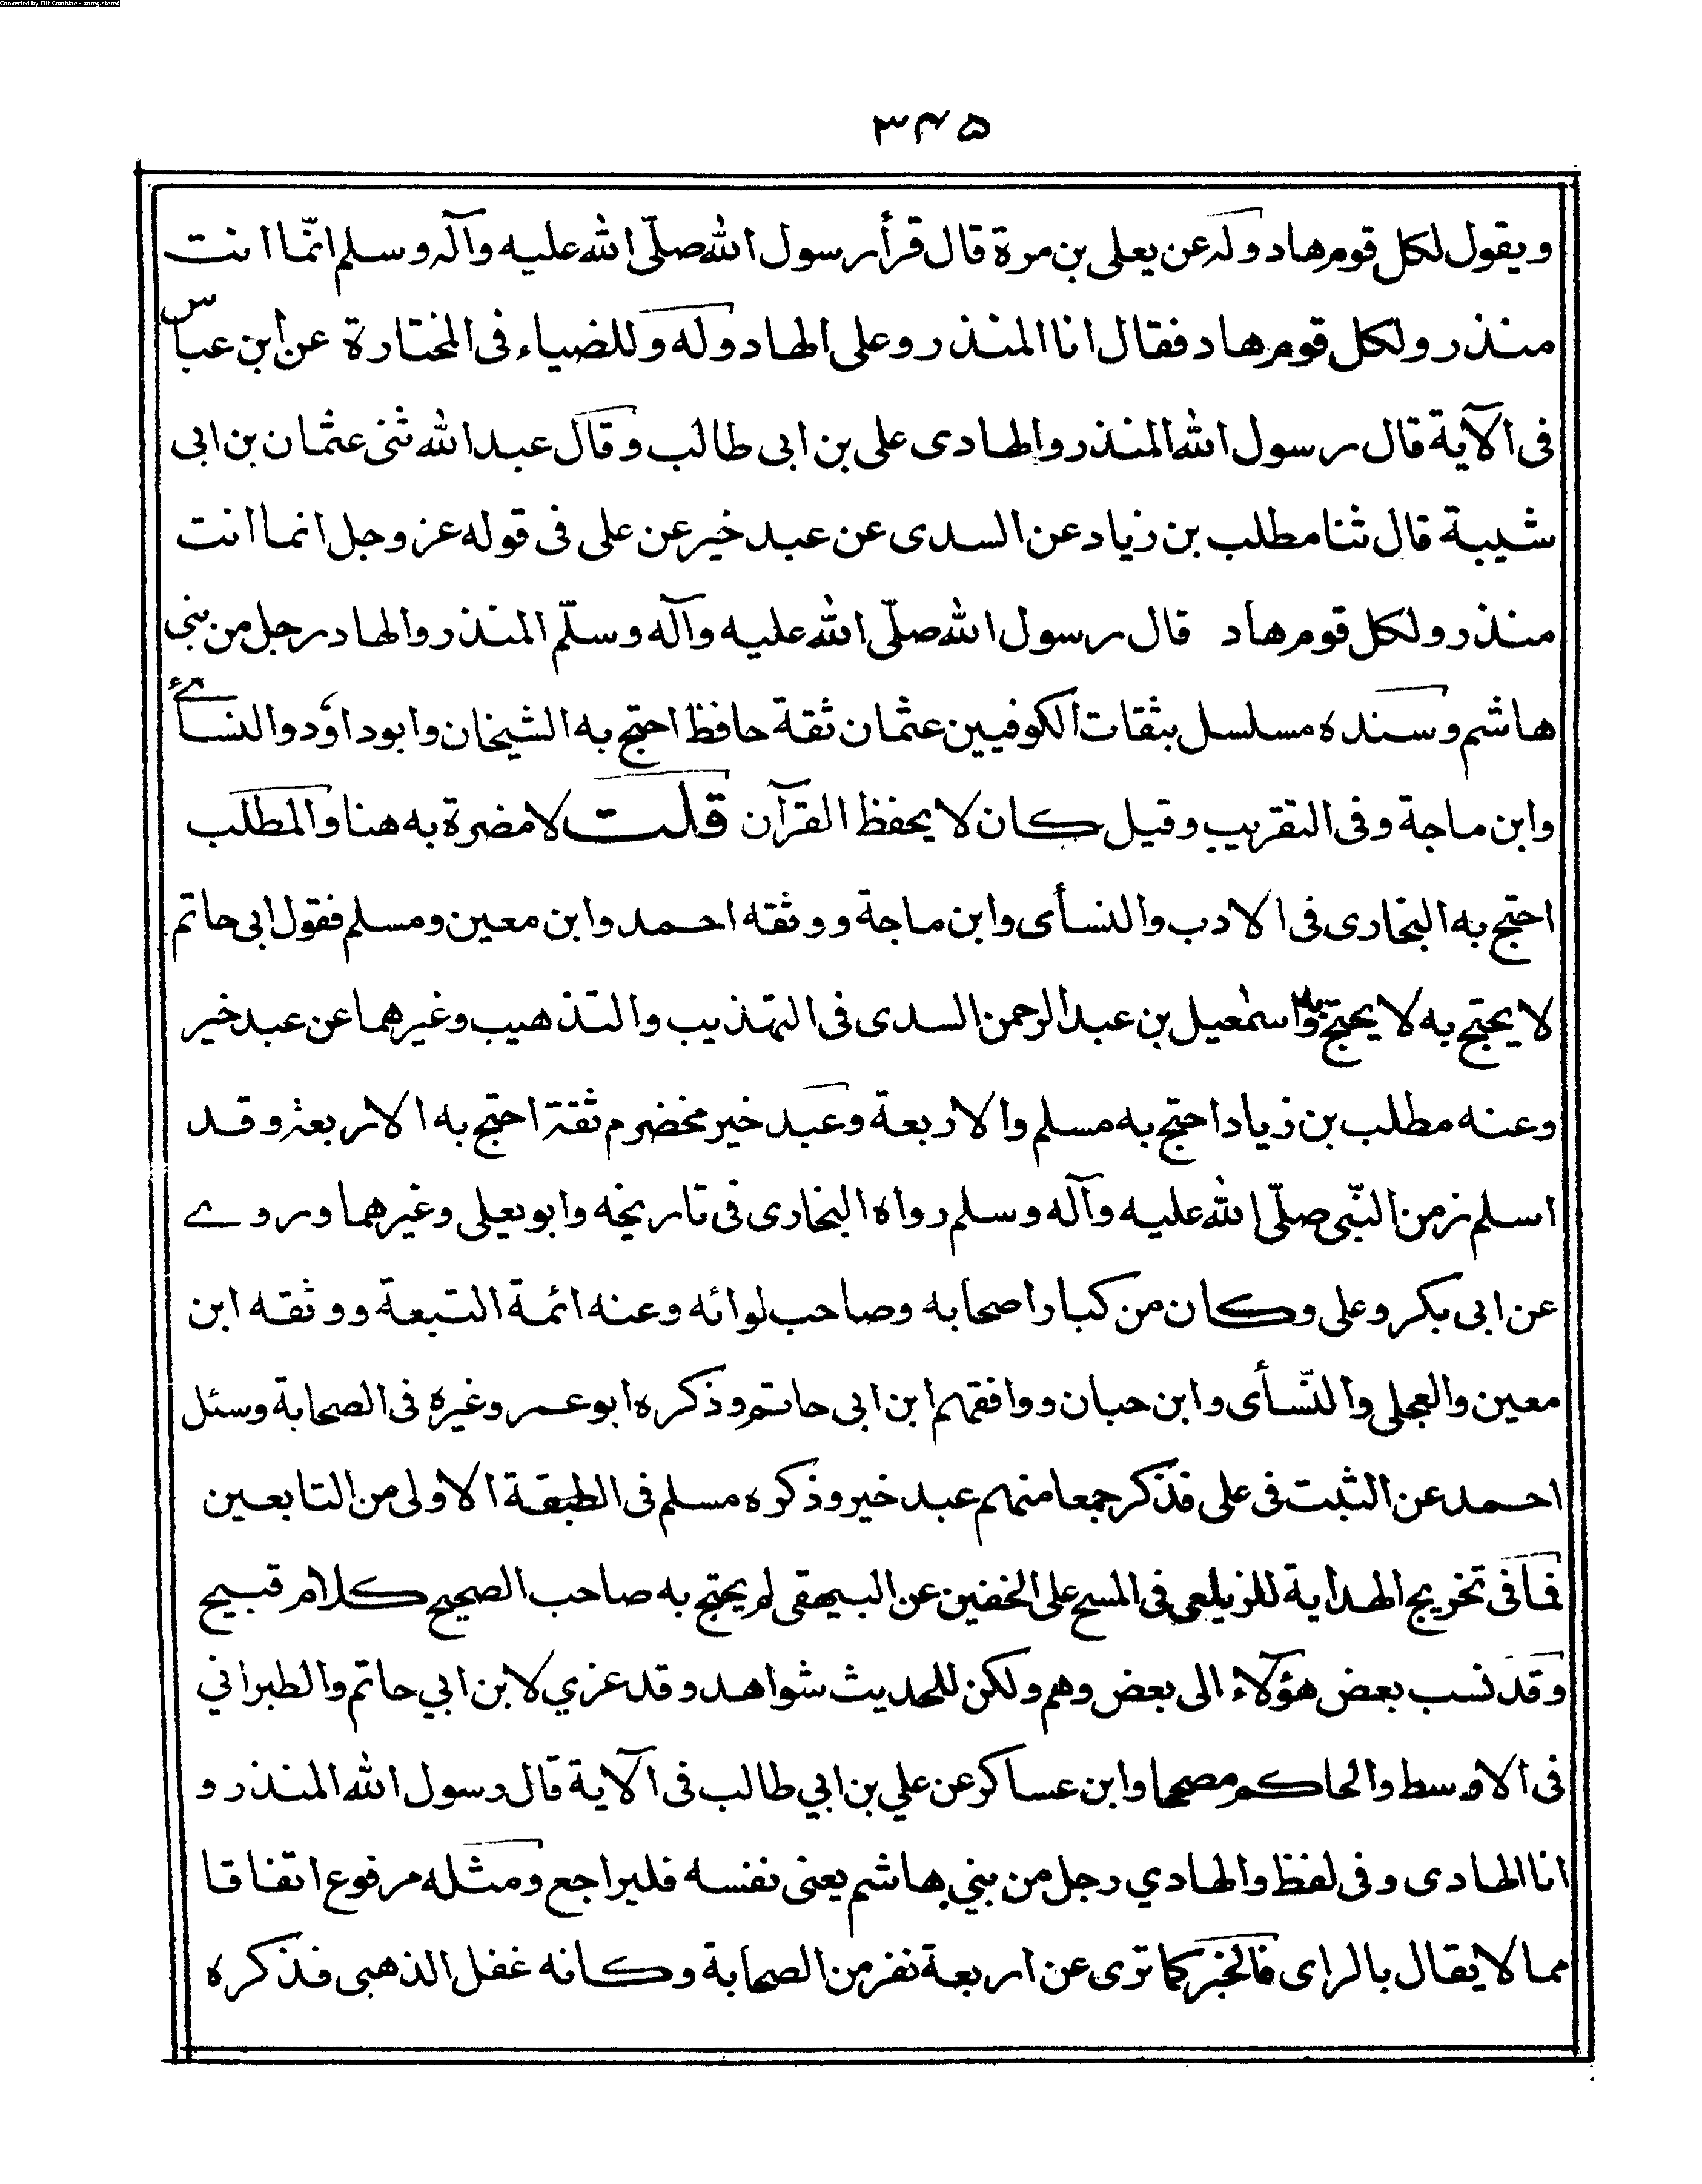 Converted by Tiff Combine - unregistered
۳۴۵
ويقول لكل قوم هاد وله عن يعلى بن مرة قال قرأ رسول الله صلّى الله عليه وآله وسلم انّما انت
منذر ولكل قوم هاد فقال انا المنذر وعلى الهاد وله وللضياء فى المختارة عن ابن عباس
فى الآية قال رسول الله المنذر والهادى على بن ابى طالب وقال عبد الله ثنى عثمان بن ابى
شيبة قال ثنا مطلب بن زياد عن السدى عن عبد خير عن على فى قوله عز وجل انما انت
منذر ولكل قوم هاد قال رسول الله صلّى الله عليه وآله وسلّم المنذر والهاد رجل من بنى
هاشم وسنده مسلسل بثقات الكوفيين عثمان ثقة حافظ احتج به الشيخان وابو داود والنسائے
وابن ماجة وفى التقريب وقيل كان لا يحفظ القرآن قلت لا مضرة به هنا والمطلب
احتج به البخارى فى الادب والنسأى وابن ماجة ووثقه احمد وابن معين ومسلم فقول ابى حاتم
لا يحتج به لا يحتج به واسمٰعيل بن عبد الرحمن السدى فى التهذيب والتذهيب وغيرهما عن عبد خير
وعنه مطلب بن زياد احتج به مسلم والاربعة وعبد خير مخضرم ثقة احتج به الاربعة وقد
اسلم زمن النبّى صلّى الله عليه وآله وسلم رواه البخارى فى تاريخه وابو يعلى وغيرهما وروے
عن ابى بكر وعلى وكان من كبار اصحابه وصاحب لوائه وعنه ائمة التبعة ووثقه ابن
معين والعجلى والنّسأى وابن حبان ووافقهم ابن ابى حاتم وذكره ابو عمر وغيره فى الصحابة وسئل
احمد عن الثبت فى على فذكر جمعا منهم عبد خير وذكره مسلم فى الطبقة الاولى من التابعين
فما فى تخريج الهداية للزيلعى فى المسح على الخفين عن البيهقى لم يحتج به صاحب الصحيح كلام قبيح
وقد نسب بعض هؤلاء الى بعض وهم ولكن للحديث شواهد وقد عزي لابن ابي حاتم والطبراني
فى الاوسط والحاكم مصححا وابن عساكر عن علي بن ابي طالب فى الآية قال رسول الله المنذر و
انا الهادى وفى لفظ والهادي رجل من بني هاشم يعنى نفسه فليراجع ومثله مرفوع اتفاقا
مما لا يقال بالراى فالخبر كما ترى عن اربعة نفر من الصحابة وكانه غفل الذهبى فذكره